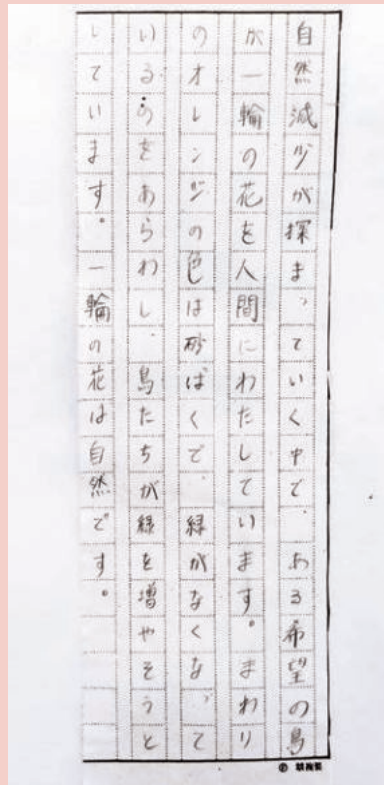 自然減少が探まっていく中で、ある希望の鳥
が一輪の花を人間にわたしています。まわり
のオレンジの色は砂ばくで、緑がなくなって
いるのをあらわし、鳥たちが緑を増やそうと
しています。一輪の花は自然です。